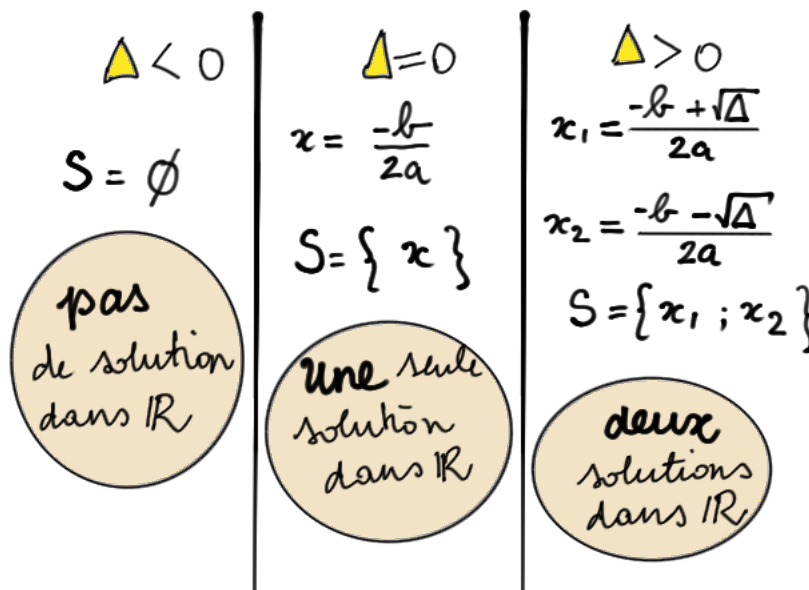 Δ < 0
S = ∅
pas
de solution
dans ℝ
Δ = 0
x = -b / 2a
S = { x }
une seule
solution
dans ℝ
Δ > 0
x₁ = -b + √Δ / 2a
x₂ = -b - √Δ / 2a
S = { x₁ ; x₂ }
deux
solutions
dans ℝ